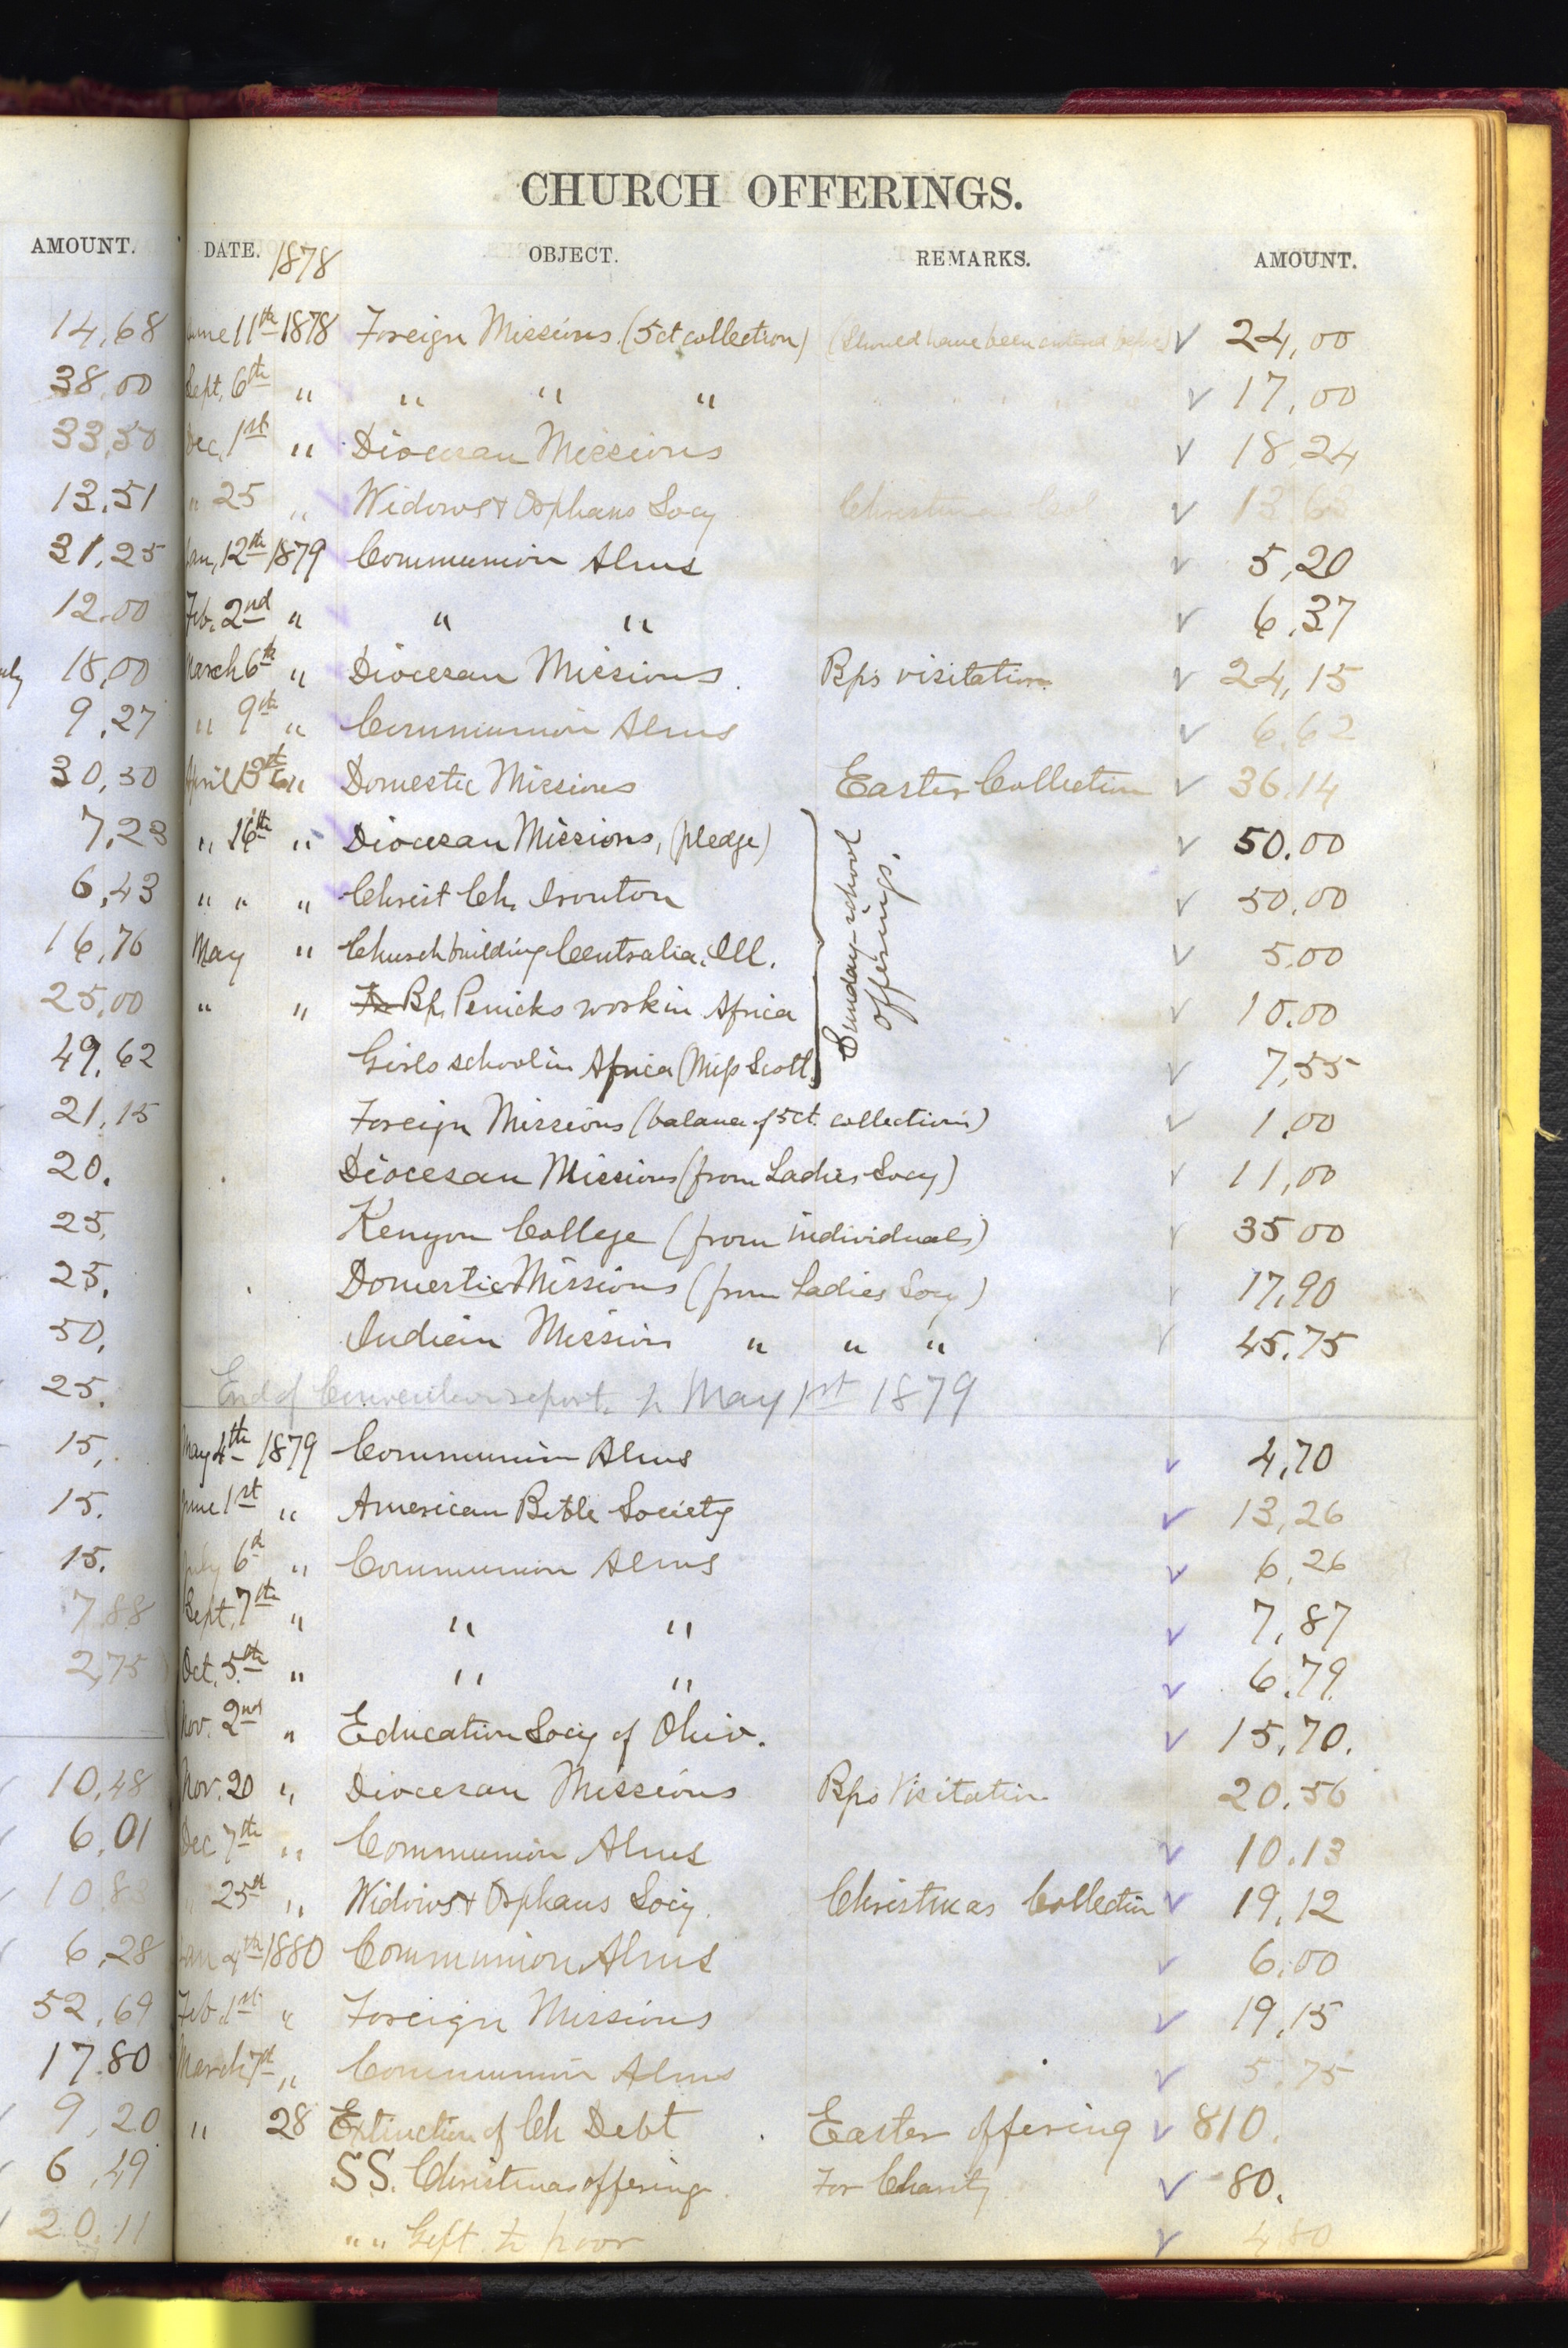 CHURCH OFFERINGS.
AMOUNT.
DATE. 1878 OBJECT. REMARKS. AMOUNT.
14,68
38,00
33,50
13,51
31,25
12.00
18,00
9,27
30,50
7,23
6,43
16,76
25,00
49,62
21,15
20.
25,
25.
50,
25.
15,
15.
15.
7,88
2,75
10,48
6,01
6,28
52,69
17.80
9,20
6,49
20,11
June 11th 1878 Foreign Missions. (5ct collection) (Should have been entered before) √ 24,00
Sept, 6th " " " " √ 17,00
Dec, 1st " Diocesan Missions √ 18,24
" 25 " Widows & Orphans Socy Christmas √ 13
Jan, 12th 1879 Communion Alms √ 5,20
Feb. 2nd " " " √ 6,37
March 6th " Diocesan Missions. Bp's visitation √ 24,15
" 9th " Communion Alms √ 6,62
April 13th " Domestic Missions Easter Collection √ 36.14
" 16th " Diocesan Missions, (pledge) √ 50.00
" " " Christ Ch. Ironton √ 50.00
May " Church building Centralia, Ill. √ 5.00
" " For Bp. Penicks work in Africa √ 10.00
Girls school in Africa (Miss Scott) √ 7,55
Sunday-school offerings.
Foreign Missions (balance of 5ct. collections) √ 1,00
Diocesan Missions (from Ladies Socy) √ 11,00
Kenyon College (from individuals) √ 35 00
Domestic Missions (from Ladies Socy) √ 17,90
Indian Mission " " " √ 45.75
End of Convention report. to May 1st 1879
May 4th 1879 Communion Alms √ 4,70
June 1st " American Bible Society √ 13,26
July 6th " Communion Alms √ 6,26
Sept. 7th " " " √ 7,87
Oct. 5th " " " √ 6.79
Nov. 2nd " Education Socy of Ohio. √ 15,70.
Nov. 20 " Diocesan Missions Bp's Visitation 20.56
Dec 7th " Communion Alms √ 10.13
" 25 " Widows & Orphans Socy. Christmas Collection √ 19,12
Jan 4th 1880 Communion Alms √ 6.00
Feb. 1st " Foreign Missions √ 19,15
March 7th " Communion Alms √ 5,75
" 28 Extinction of Ch Debt Easter offering √ 810.
SS. Christmas offering. For Charity √ 80.
" " Gift to poor √ 4.80